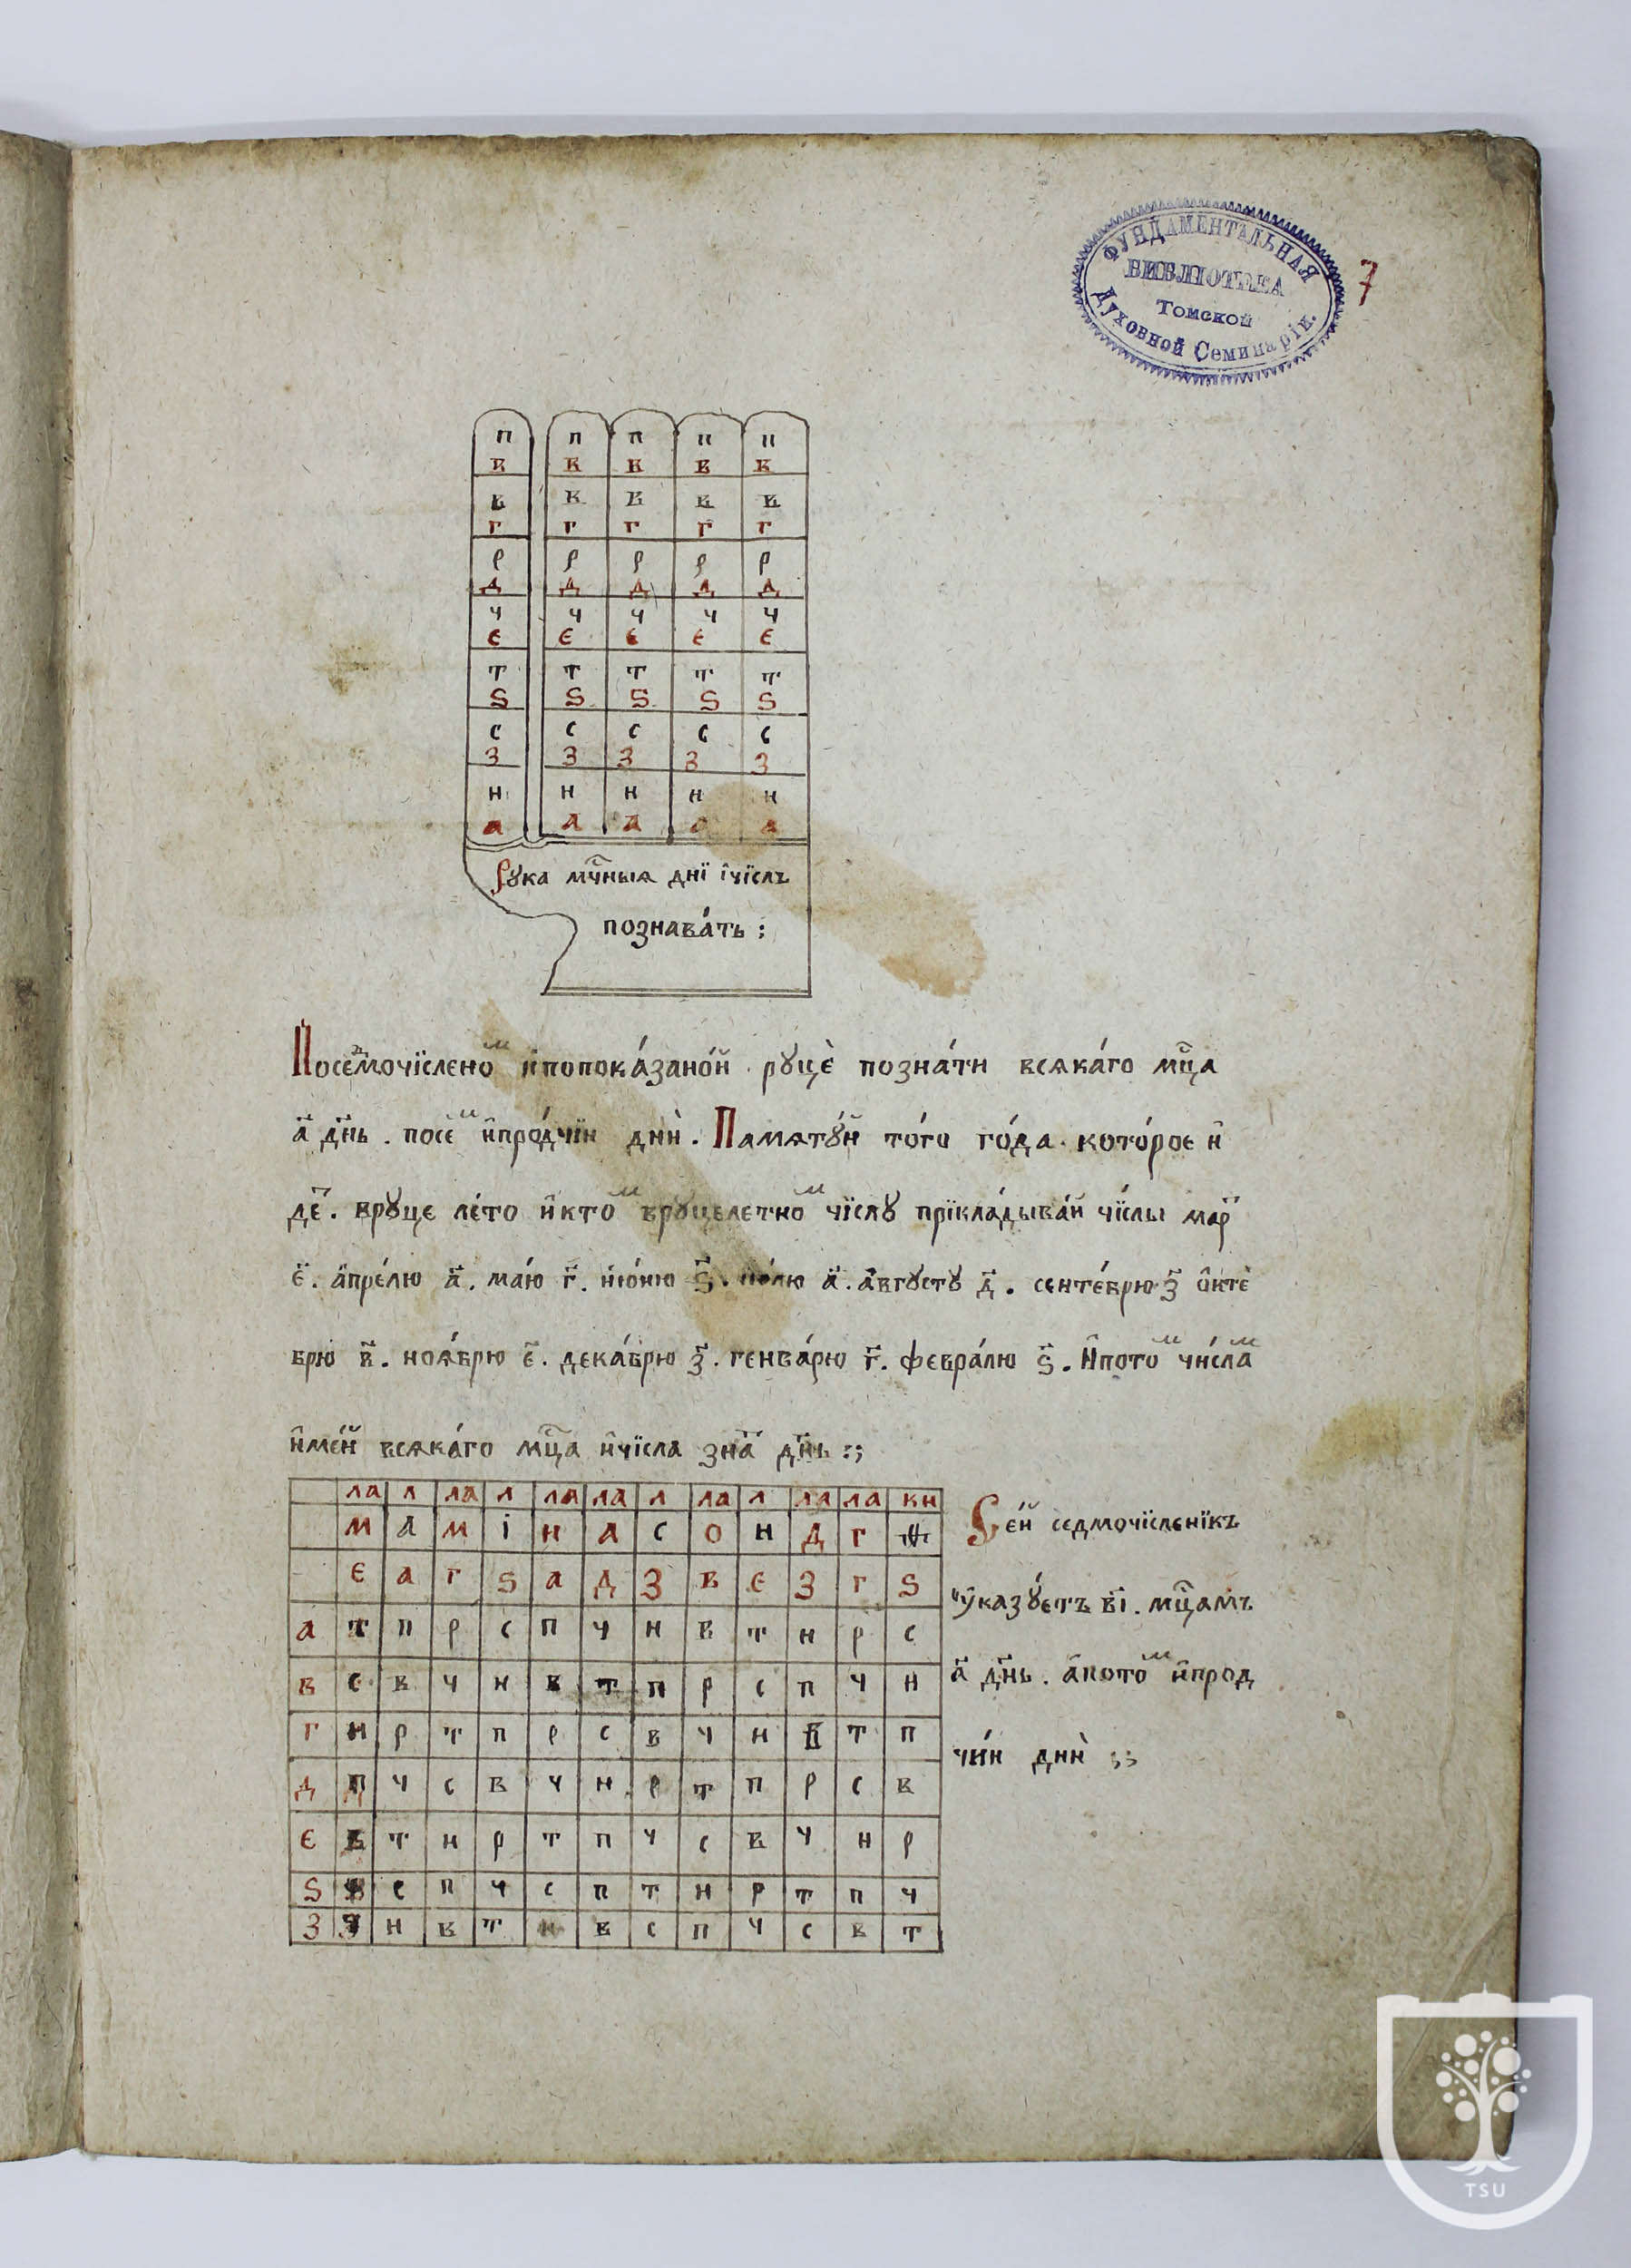 ФУНДАМЕНТАЛЬНАЯ
БИБЛІОТЕКА
Томской
Духовной Семинаріи.
7
п п п п п
в в в в в
в в в в в
г г г г г
р р р р р
д д д д д
ч ч ч ч ч
є є є є є
т т т т т
ѕ ѕ ѕ ѕ ѕ
с с с с с
з з з з з
н н н н н
а а а а а
Рꙋка мчⷭныѧ дн҃ї і҆чїслъ
познава́ть :
Посеⷣмочїсленоⷨ и҆попока́зано́й рꙋцѐ позна́ти всѧка́го мцⷭа
а҃ дн҃ь . посеⷨ и҆про́дчїи днѝ . Памѧтꙋ́й то́го го́да кото́рое и҆
де҃ . врꙋце ле́то и҆ктоⷨ врꙋцелетноⷨ чїслꙋ прїкла́дыва́й чїслы мар҃
є҃ . а҆пре́лю а҃ . ма́ю г҃ . и҆ю́ню ѕ҃ . ию́лю а҃ . а҆́вгꙋстꙋ д҃ . сенте́врю з҃ о҆ктѐ
врю в҃ . ноѧ́врю є҃ . дека́врю з҃ . генва́рю г҃ . февра́лю ѕ҃ . И҆потоⷨ чи́слаⷨ
и҆ме́й всѧка́го мцⷭа и҆чїсла зна҃ дн҃ь :;
ла л ла л ла ла л ла л ла ла кн
м а м і и а с о н д г ф
є а г ѕ а д з в є з г ѕ
а т п р с п ч н в т н р с
в с в ч н в т п р с п ч н
г н р т п р с в ч н в т п
д п ч с в ч н р т п р с в
є в т н р т п ч с в ч н р
ѕ с п ч с п т н р т п ч
з н в т н в с п ч с в т
Се́й седмочїсленїкъ
ᲂу҆казꙋ́етъ в҃і . мцⷭамъ
а҃ дн҃ь . а҆потоⷨ и҆прод
чи́и днѝ ;;
TSU